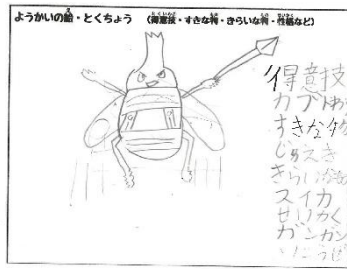 ようかいの絵・とくちょう （得意技・すきな物・きらいな物・性格など）
得意技
カブト
すきな
じゅえき
きらいな
スイカ
せいかく
ガンガン